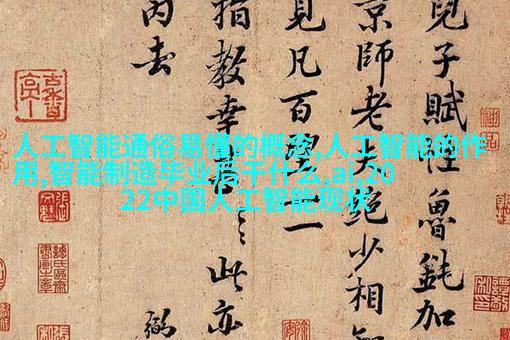 人工智能通俗易懂的概念,人工智能的作
用,智能制造毕业后干什么,ai 20
22中国人工智能现状
兒子賦性魯鈍加
京師老夫絶少相
見凡百望一一
指教幸甚〻此亦
丙去
弼